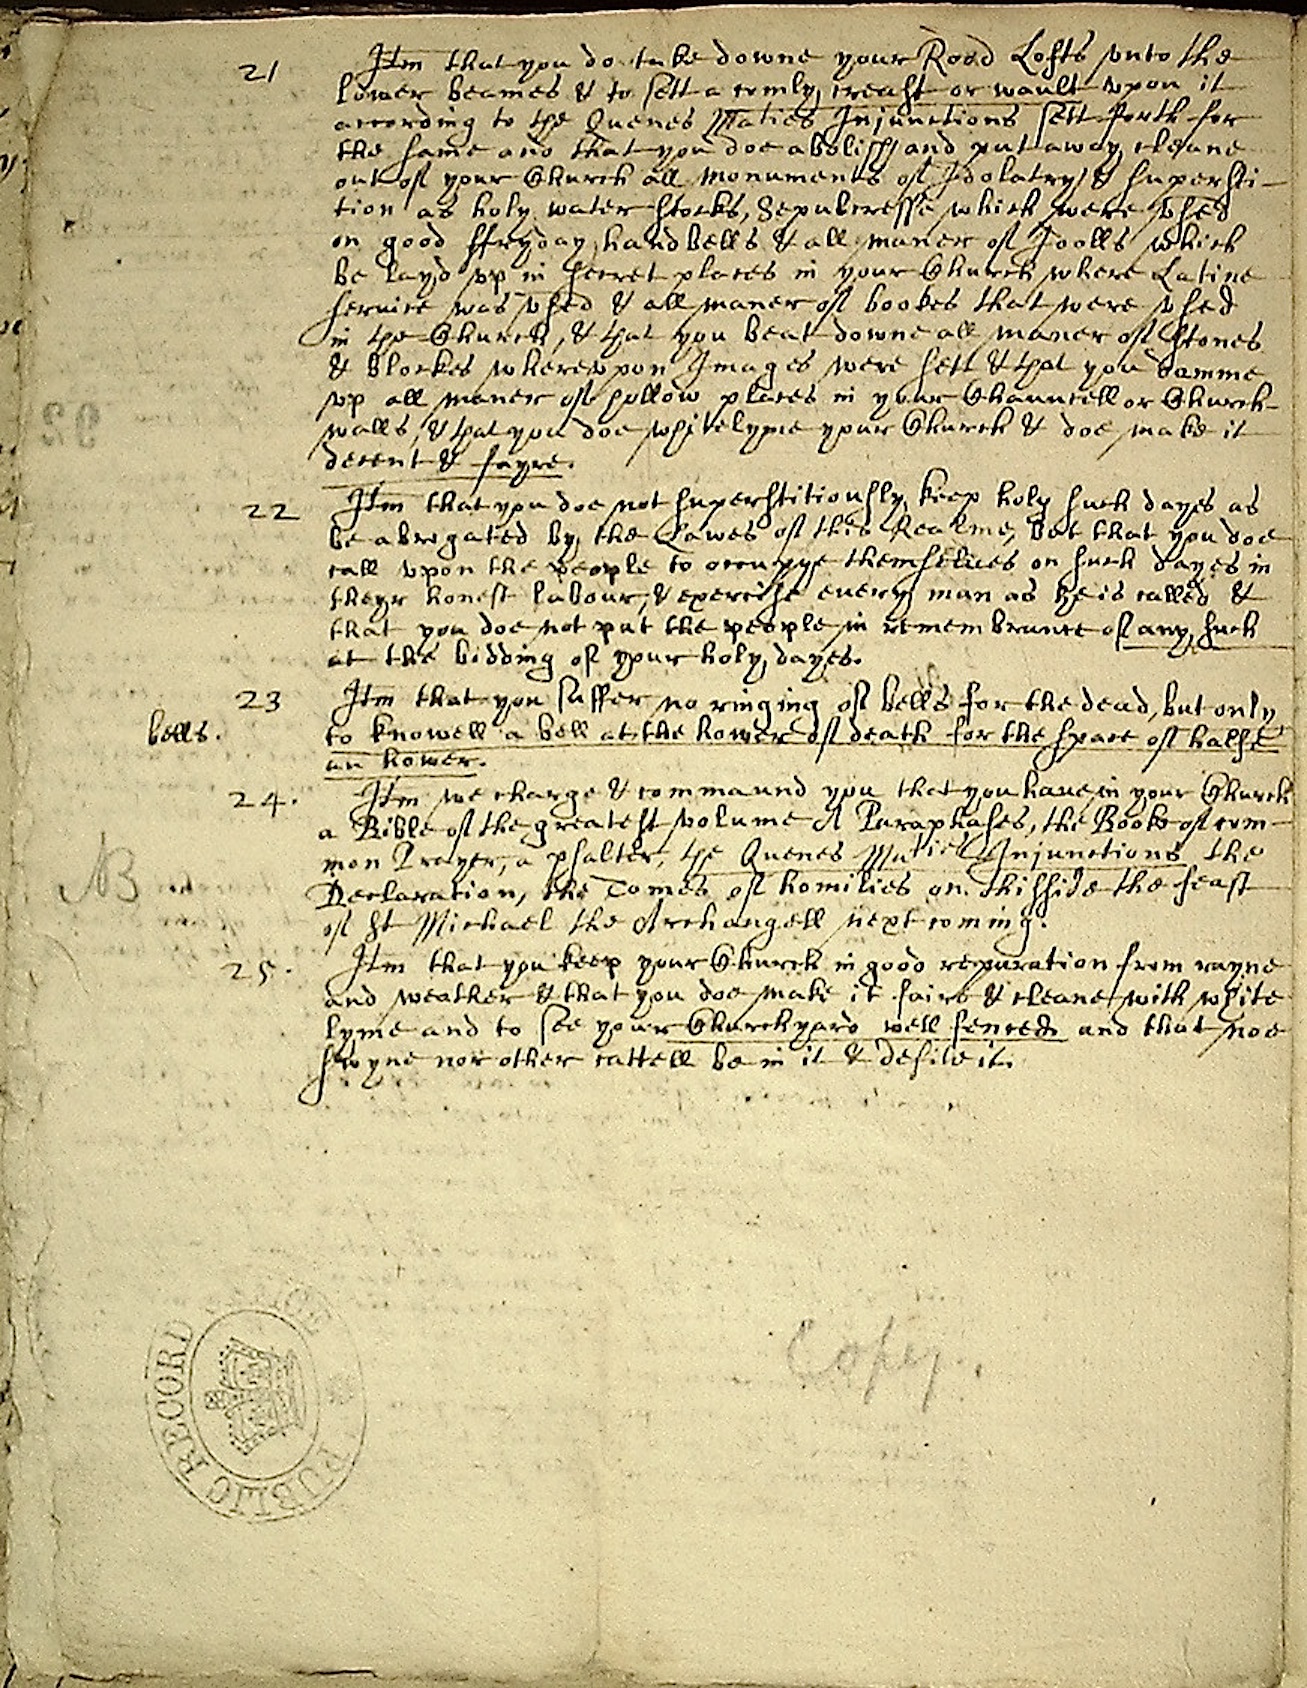 21 Itm that you do take downe your Rood Lofts vnto the
lower beames & to sett a comly creast or vault vpon it
according to the Quenes Maties Injunctions sett forth for
the same and that you doe abolish and put away cleane
out of your Church all monuments of Idolatry & supersti-
tion as holy water stocks, Sepulcresse which were vsed
on good ffryday, handbells & all maner of Idolls which
be layd vp in secret places in your Church where Latine
service was vsed & all maner of bookes that were vsed
in the Church, & that you beat downe all maner of stones
& blockes wherevpon Images were sett & that you damme
vp all maner of hollow places in your Chauncell or Church
walls, & that you doe whitelyme your Church & doe make it
decent & fayre.
22 Itm that you doe not superstitiously keep holy such dayes as
be abrogated by the Lawes of this Realme, but that you doe
call vpon the people to occupye themselues on such dayes in
theyr honest labour, & exercise euery man as he is called &
that you doe not put the people in remembrance of any such
at the bidding of your holy dayes.
23 Itm that you suffer no ringing of bells for the dead, but only
bells. to knowell a bell at the hower of death for the space of halfe
an hower.
24. Itm we charge & command you that you haue in your Church
a Bible of the greatest volume A Paraphases, the Booke of com-
mon Prayer, a psalter, the Quenes Maties Injunctions the
NB Declaration, the Tomes of homilies on thisside the feast
of St Michael the Archangell next coming.
25. Itm that you keep your Church in good reparation from rayne
and weather & that you doe make it faire & cleane with white
lyme and to see your Churchyard well fenced and that noe
swyne nor other cattell be in it & defile it.
Copey.
PUBLIC RECORD OFFICE